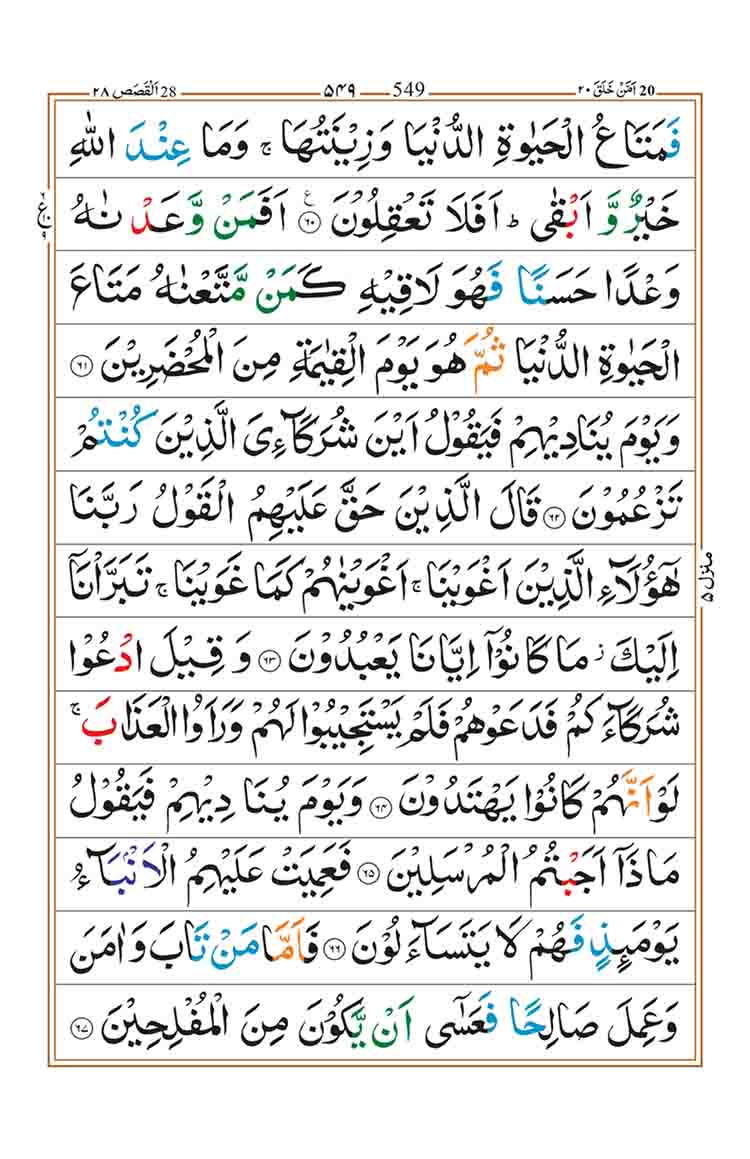 20 اَمَّنْ خَلَقَ ٢٠ 549 ۵۴۹ 28 اَلْقَصَص ٢٨
فَمَتَاعُ الْحَيٰوةِ الدُّنْيَا وَزِيْنَتُهَا ۚ وَمَا عِنْدَ اللّٰهِ
خَيْرٌ وَّ اَبْقٰى ؕ اَفَلَا تَعْقِلُوْنَ ۶۰ اَفَمَنْ وَّعَدْ نٰهُ
وَعْدًا حَسَنًا فَهُوَ لَاقِيْهِ كَمَنْ مَّتَّعْنٰهُ مَتَاعَ
الْحَيٰوةِ الدُّنْيَا ثُمَّ هُوَ يَوْمَ الْقِيٰمَةِ مِنَ الْمُحْضَرِيْنَ ۶۱
وَيَوْمَ يُنَادِيْهِمْ فَيَقُوْلُ اَيْنَ شُرَكَآءِىَ الَّذِيْنَ كُنْتُمْ
تَزْعُمُوْنَ ۶۲ قَالَ الَّذِيْنَ حَقَّ عَلَيْهِمُ الْقَوْلُ رَبَّنَا
هٰٓؤُلَآءِ الَّذِيْنَ اَغْوَيْنَا ۚ اَغْوَيْنٰهُمْ كَمَا غَوَيْنَا ۚ تَبَرَّاْنَاۤ
اِلَيْكَ ز مَا كَانُوْۤا اِيَّانَا يَعْبُدُوْنَ ۶۳ وَ قِيْلَ ادْعُوْا
شُرَكَآءَكُمْ فَدَعَوْهُمْ فَلَمْ يَسْتَجِيْبُوْا لَهُمْ وَرَاَوُا الْعَذَابَ ۚ
لَوْ اَنَّهُمْ كَانُوْا يَهْتَدُوْنَ ۶۴ وَيَوْمَ يُنَا دِيْهِمْ فَيَقُوْلُ
مَاذَاۤ اَجَبْتُمُ الْمُرْسَلِيْنَ ۶۵ فَعَمِيَتْ عَلَيْهِمُ الْاَنْۢبَآءُ
يَوْمَٮِٕذٍ فَهُمْ لَا يَتَسَآءَ لُوْنَ ۶۶ فَاَمَّا مَنْ تَابَ وَاٰمَنَ
وَعَمِلَ صَالِحًا فَعَسٰٓى اَنْ يَّكُوْنَ مِنَ الْمُفْلِحِيْنَ ۶۷
منزل ۵